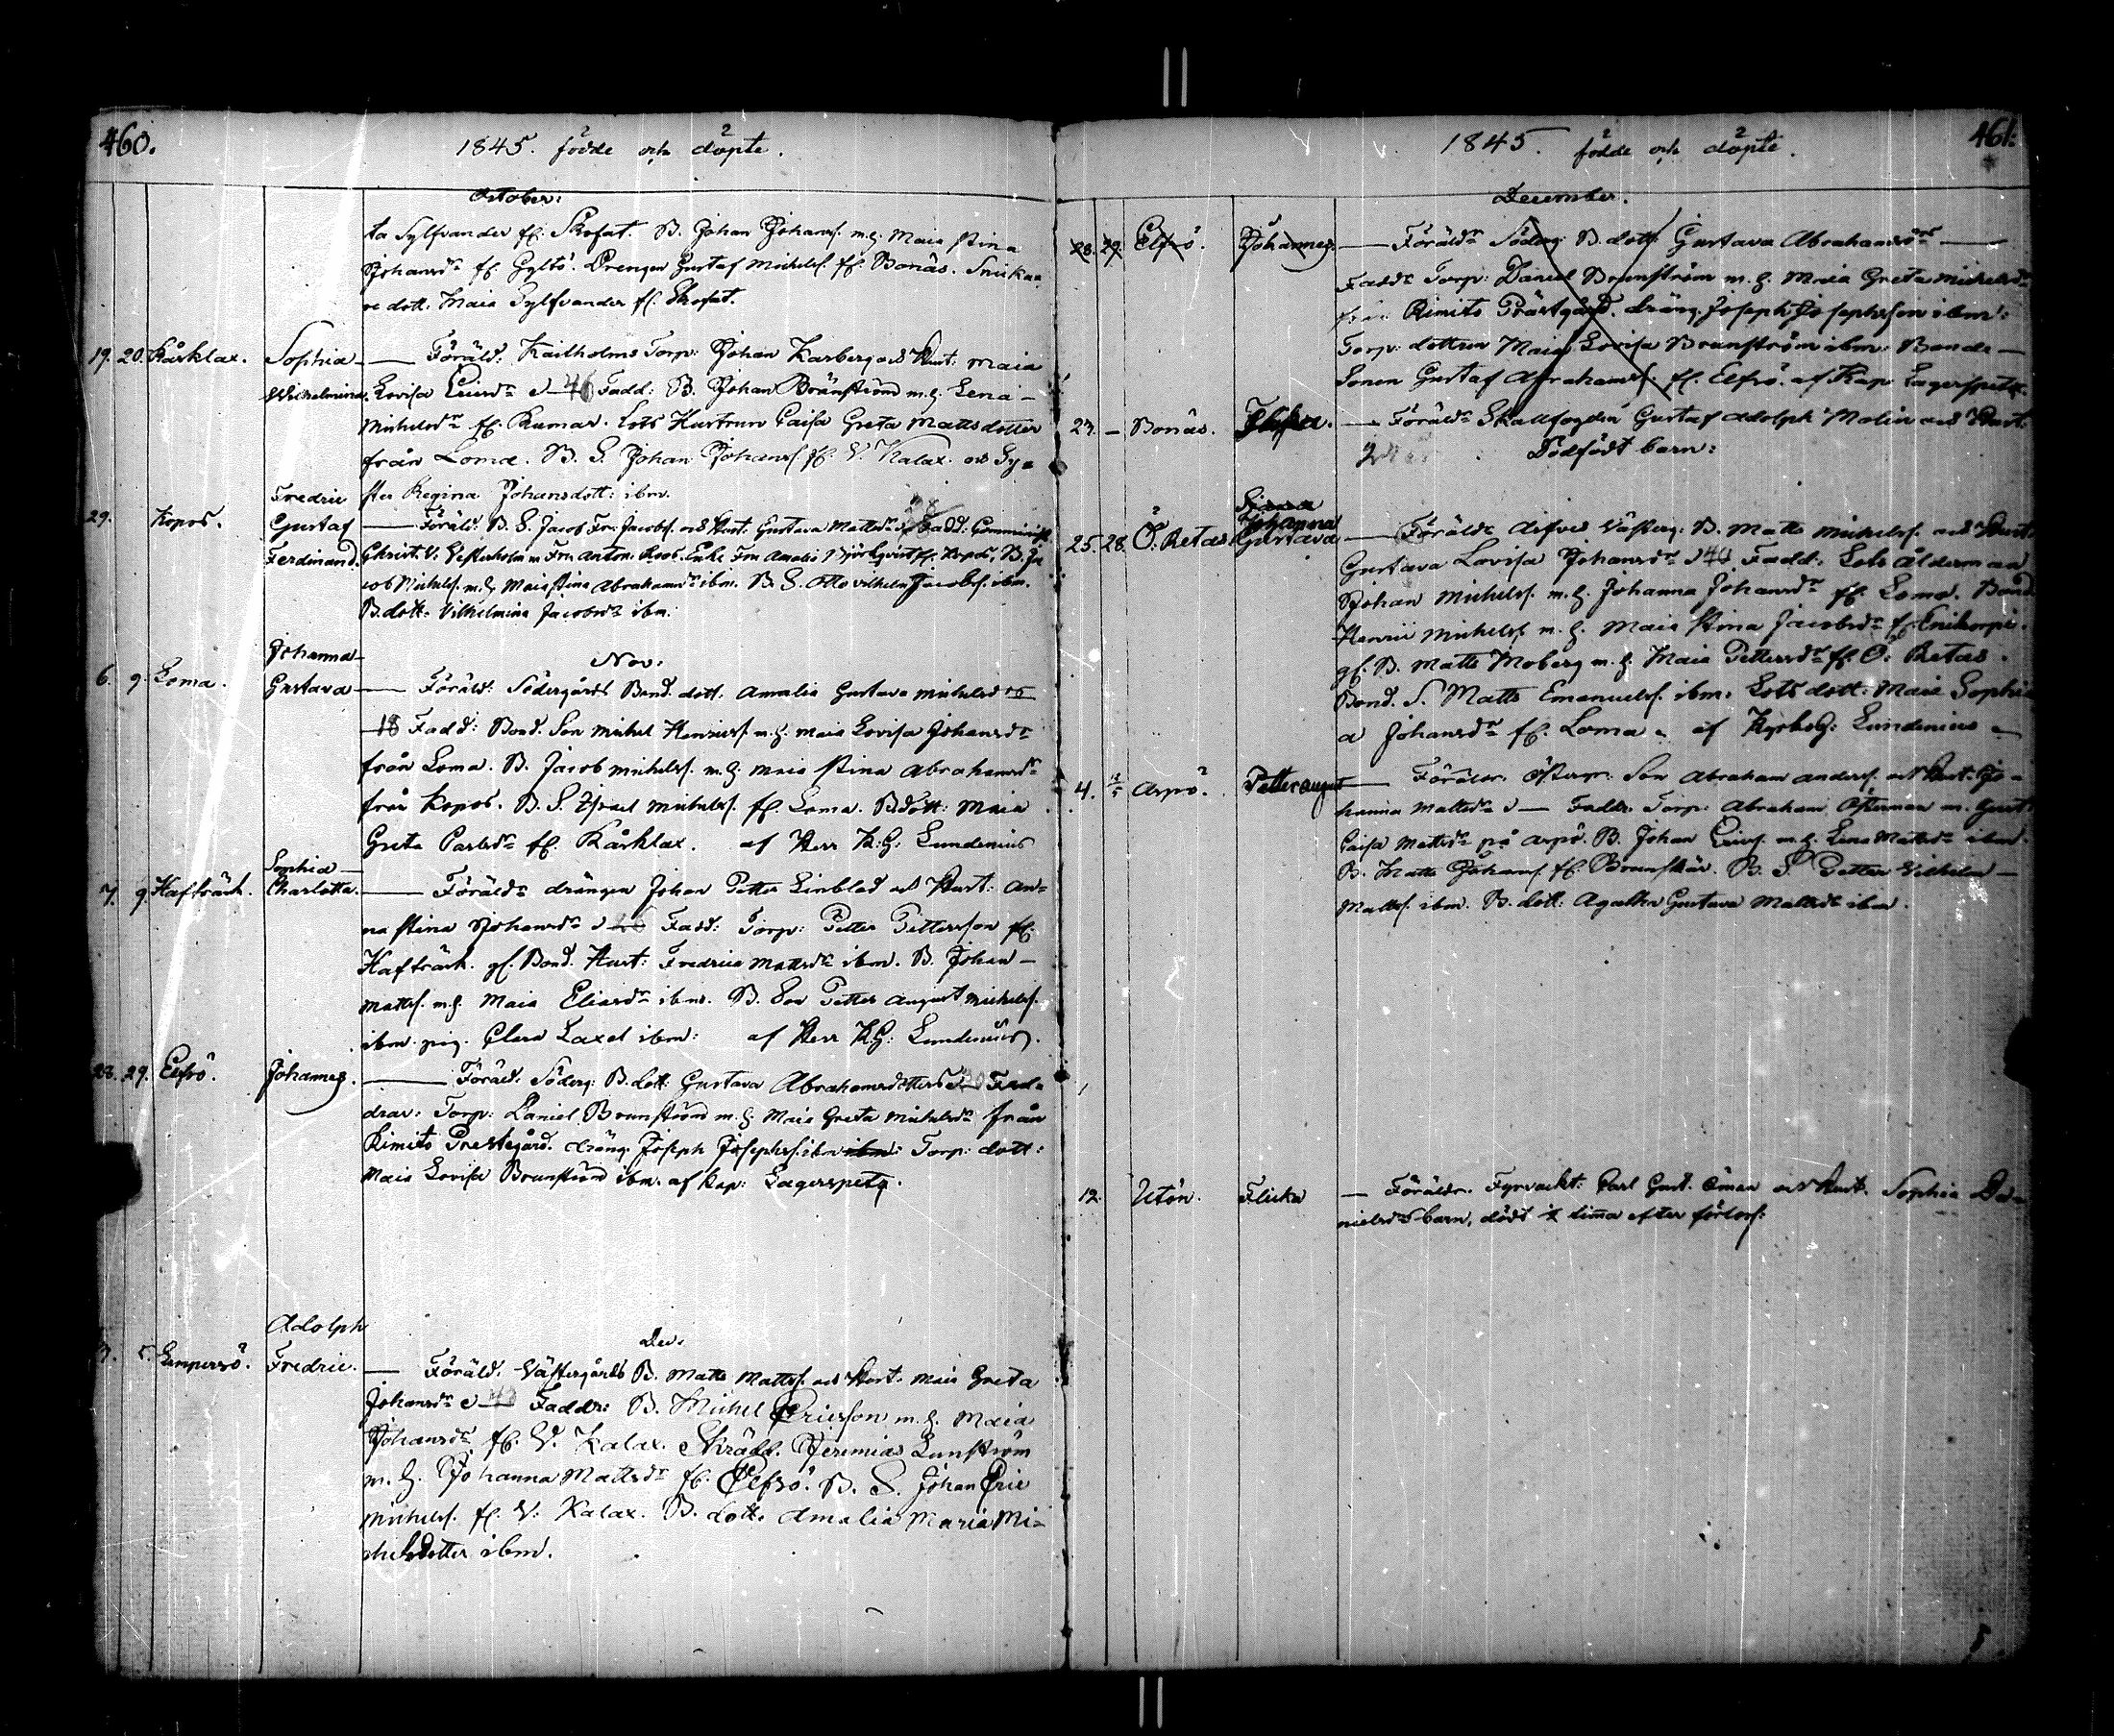 460.
1845. födde och döpte.
October:
ta Sylfvander fr. Skofat. B. Johan Johans. m.h. Maia Stina
Johansdr fr. Gyltö. Drengen Gustaf Michels. fr. Bonäs. Snicka-
re dott. Maia Sylfvander fr. Skofat.
19. 20. Kårklax. Sophia — Föräld. Torp: Johan Karberg och Hust. Maia
Wilhelmina. Lovisa Ericsdr 46 Fadd: B. Johan Brönström m.h. Lena
Michelsdr fr. Rumar. Lots Hustrun Caisa Greta Mattsdotter
från Loma. B. S. Johan Johans. fr. V. Kalax. och Sy-
ster Regina Johansdott: ibm.
Fredric
29. Kopos. Gustaf — Föräld. B. S. Jacob Fr. Jacobs. och Hust. Gustava Mattsdr Fadd:
Ferdinand. Christ. V. m Fru Anton. Roos. Enke Fru Amalie Björkqvist fr. Kopos. B. Ja
cob Michels. m.h. Maia Stina Abrahamsdr ibm. B. S. Otto Vilhelm Jacobs. ibm.
B. dott. Vilhelmina Jacobsdr ibm:
Johanna
Nov:
6. 9. Loma. Gustava — Föräld: Södergårds Bond. dott. Amalia Gustava Michelsd
18 Fadd: Bond. Son Michel Henrics. m.h. Maia Lovisa Johansdr
från Loma. B. Jacob Michels. m.h. Maia Stina Abrahamsdr
från Kopos. B. S. Israel Michels. fr. Loma. B. dott: Maia
Greta Carlsdr fr. Kårklax. af Herr K:G: Lundenius
Sophia
7. 9. Hafträsk. Charlotta. — Föräldr drängen Johan Petter Linblad och Hust: An-
na Stina Johansdr Fadd: Torp: Petter Pettersson fr.
Hafträsk. gl. Bond. Hust: Fredrica Mattsdr ibm. B. Johan
Matts. m.h. Maia Eliasdr ibm. B. Son Petter August Michels.
ibm. pig. Clara Laxel ibm: af Herr K:G: Lundenius.
28. 29. Elfsö. Johannes. — Föräld. Söderg: B. dott: Gustava Abrahamsdotters Fad-
drar: Torp: Daniel Brunström m.h. Maia Greta Michelsdr från
Kimito Prestegård. dräng Joseph Josephs. ibm ibm: Torp: dott:
Maia Lovisa Brunström ibm. af Kap: Lagerspetz.
Adolph
Dec:
3. 5. Lempersö. Fredric. — Föräld. Västergårds B. Matts Matts. och Hust. Maia Greta
Johansdr Faddr: B. Michel Ericsson m.h. Maia
Johansdr fr. V. Kalax. Skrädd. Jeremias Lunström
m.h. Johanna Mattsdr fr. Elfsö. B. S. Johan Eric
Michels. fr. V. Kalax. B. dott. Amalia Maria Mi-
chelsdotter ibm.
461.
1845. födde och döpte.
December.
28. 29. Elfsö. Johannes. — Föräldr Söderg: B. dott: Gustava Abrahamsdr
Faddr Torp: Daniel Brunström m.h. Maia Greta Michelsdr
från Kimito Prästgård. dräng. Joseph Josephsson ibm:
Torp: dottren Maia Lovisa Brunström ibm: Bonde
Sonen Gustaf Abrahams. fr. Elfsö. af Kap Lagerspetz.
27. — Bonäs. Flicka. — Föräldr Skallfogden Gustaf Adolph Malin och Hust.
Dödfödt barn:
Stina
Johanna
25. 28. Ö. Retais Gustava — Föräldr Västerg: B. Matts Michels. och Hust:
Gustava Lovisa Johansdr 40 Fadd: Lots ålderman
Johan Michels. m.h. Johanna Johansdr fr. Loma. Bond
Henric Michels. m.h. Maia Stina Jacobsdr fr.
gl. B. Matts Moberg m.h. Maia Pettersdr fr. Ö. Retais.
Bond. S. Matts Emanuels. ibm. Lots dott: Maia Sophi
a Johansdr fr. Loma. af Lundenius
4. Aspö. Petter August — Föräldr. Österg. Son Abraham Anders. och Hust. Jo-
hanna Mattsdr Faddr. Torp: Abraham Österman m. Hust:
Caisa Mattsdr på Aspö. B. Johan Erics. m.h. Lena Mattsdr ibm.
B. Matts Johans. fr. Brunskär. B. S. Petter Vilhelm
Matts. ibm. B. dott: Agatha Gustava Mattsdr ibm.
12. Utön. Flicka — Föräldr. Fyrvackt: Carl Gust. Öman och Hust. Sophia Da-
nielsdr barn, dödt timma efter förloss: